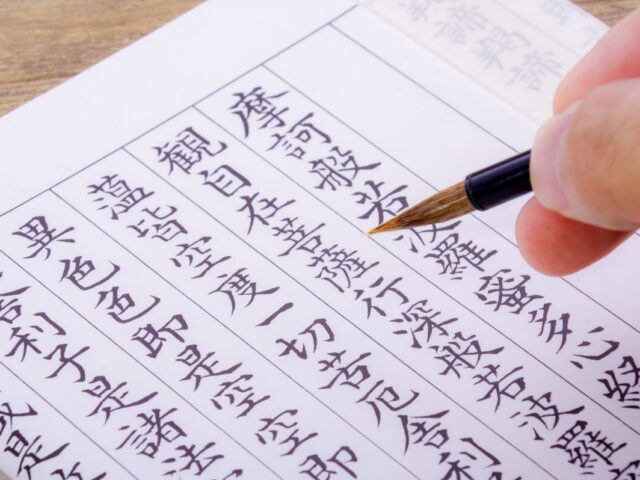 羯諦羯諦
摩訶般若波羅蜜多心経
観自在菩薩行深般若波羅
蘊皆空度一切苦厄舎利
異色色即是空空即
舎利子是諸法
是